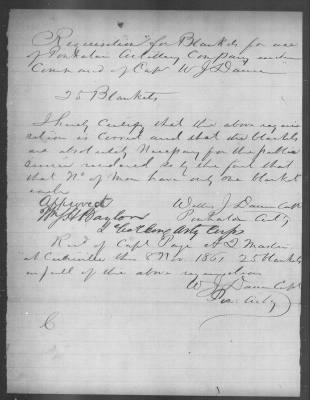 Requisition for Blankets for use
of Powhatan Artillery Company under
Command of Capt W J Dance
25 Blankets
I hereby Certify that the above requi
sition is Correct and that the Blankets
are absolutely Necessary for the public
service rendered so by the fact that
that No of men have only one blanket
each
Approved
Willis J Dance Capt
Powhatan Arty
Recd of Capt Page A Q Master
at Centreville this 8 Nov. 1861 25 Blankets
in full of the above requisition
W J Dance Capt
Pow. Arty